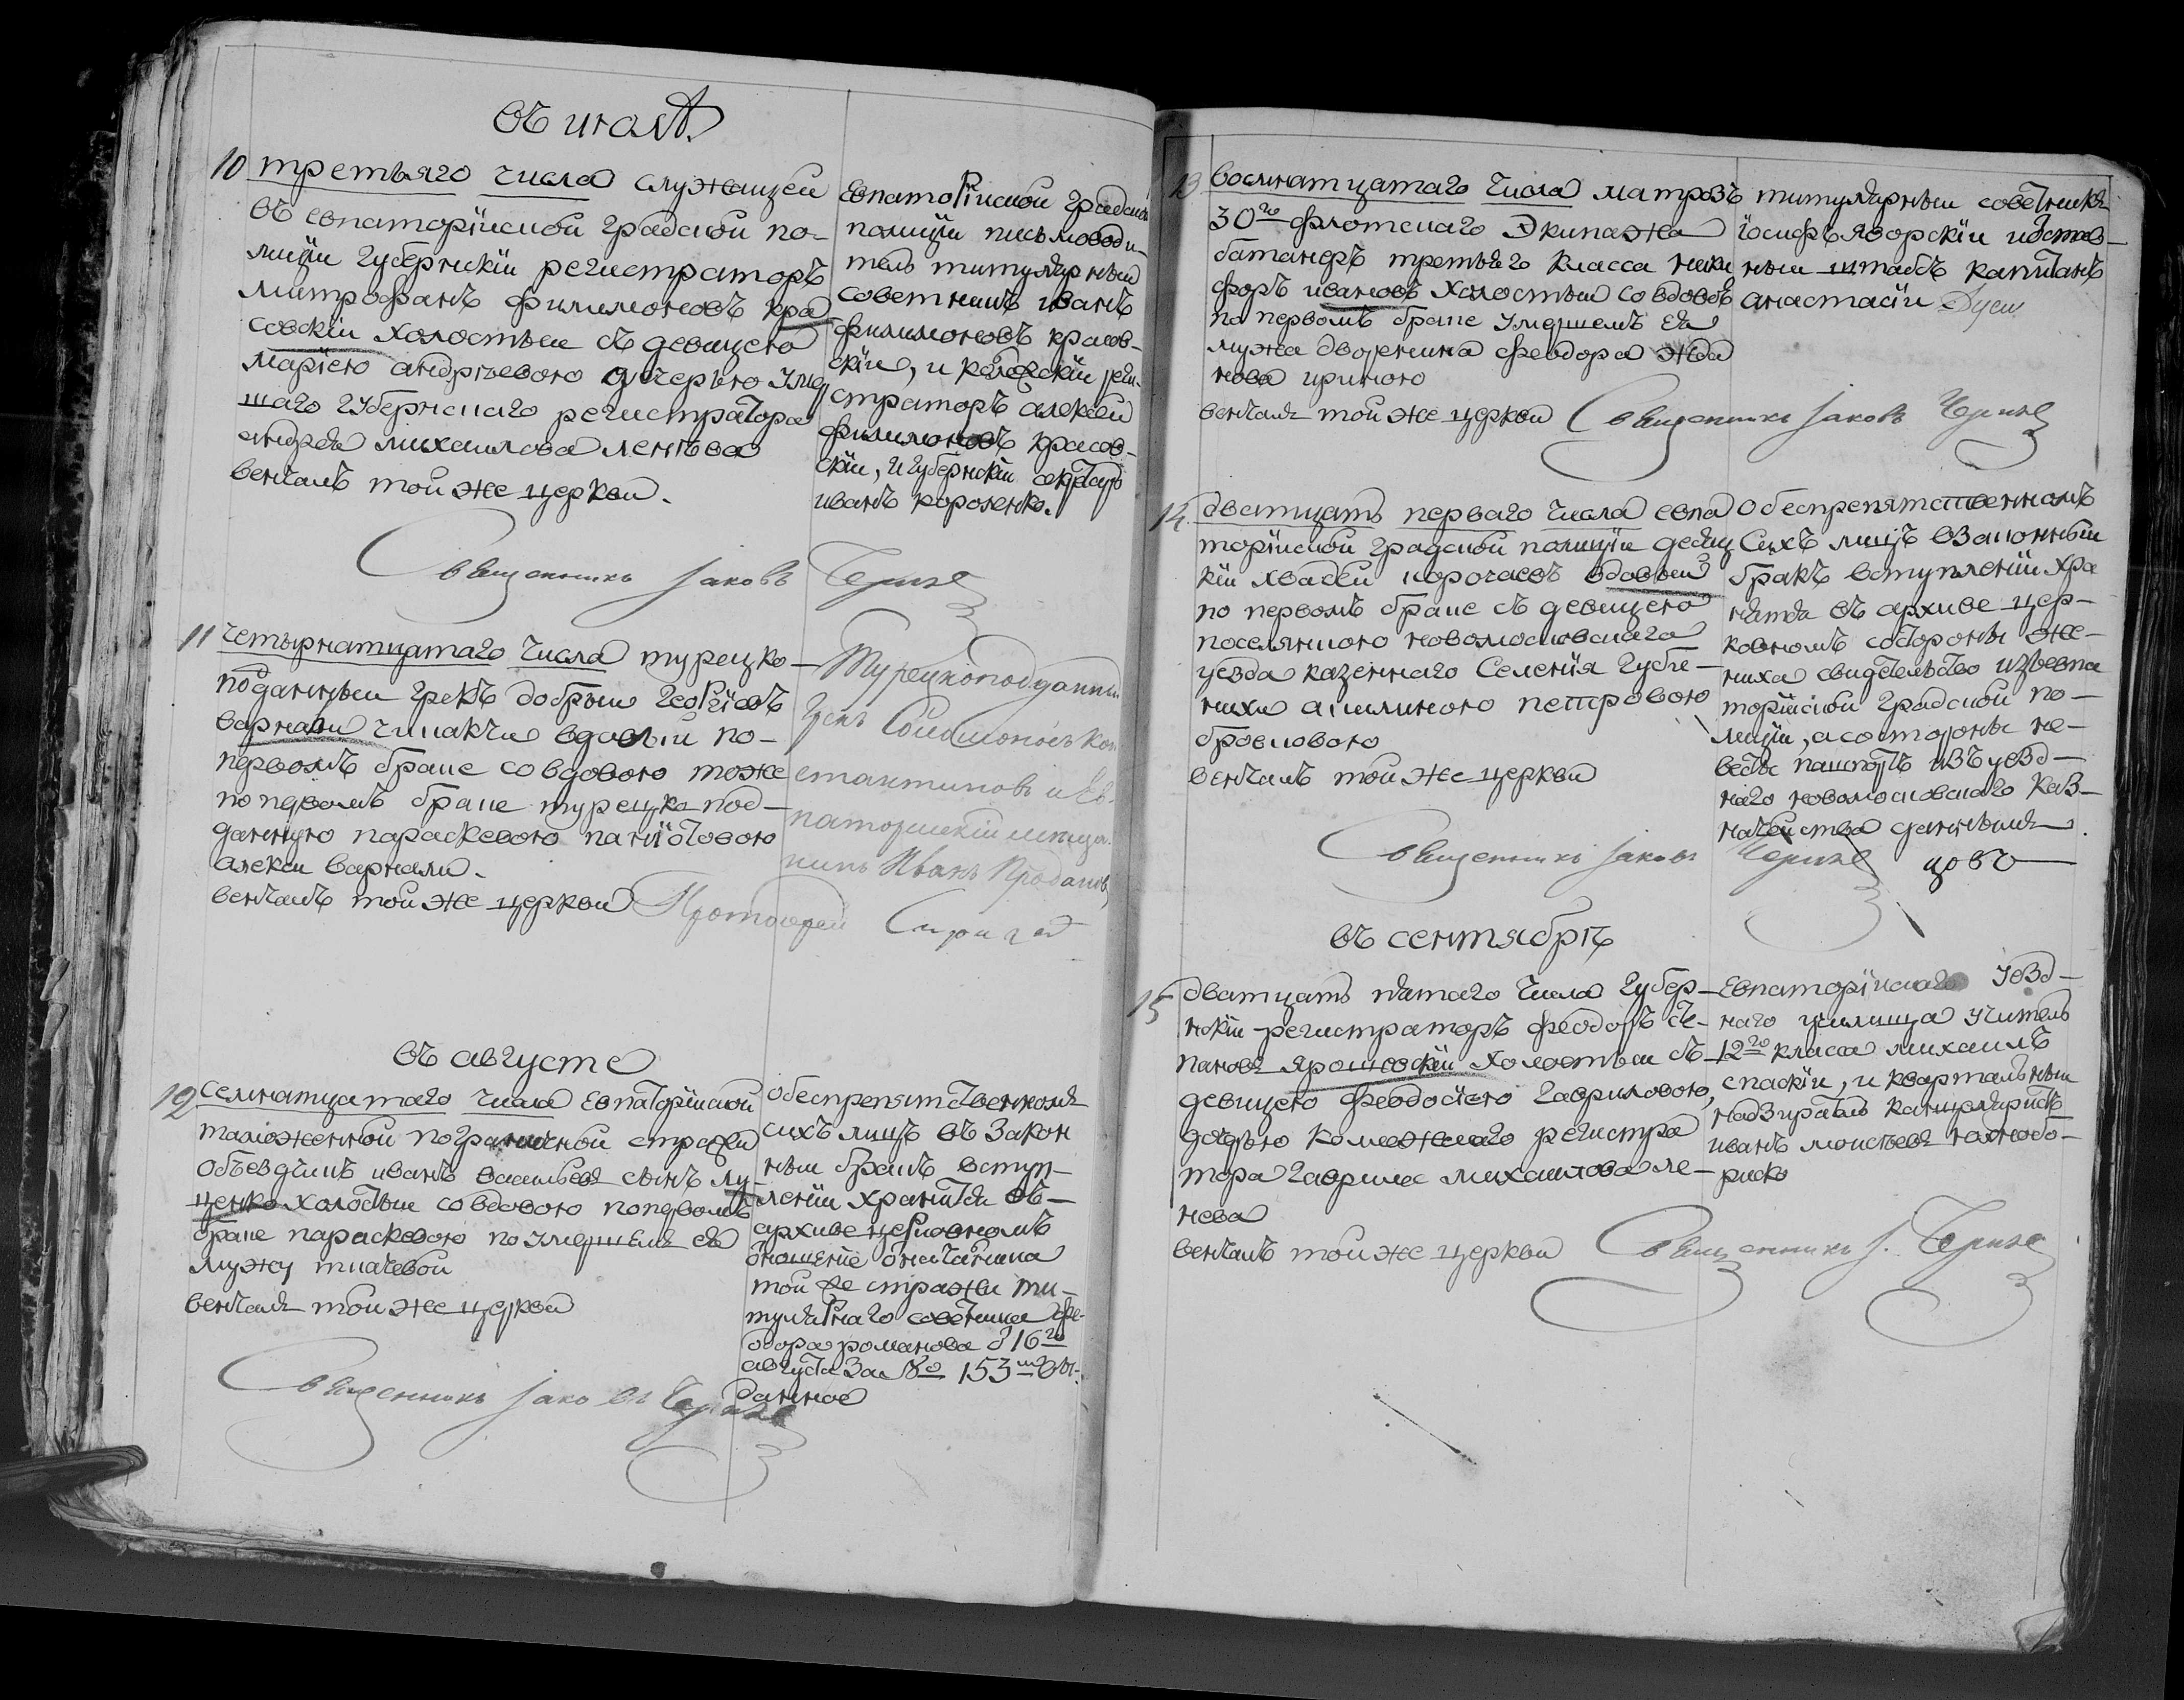 въ июлѣ
10 третьяго числа служащей
въ евпаторїиской градской по-
лицїи губернскїи регистраторъ
митрофанъ филимоновъ кра
совскїи холостыи съ девицею
марїею андрѣевою дчерью уме
шаго губернскаго регистратора
андрея михаилова ленѣва
венчалъ тои же церкви.
Евпаторїиской градской
полицїи письмоводи-
тель титулярныи
советникъ иванъ
филимоновъ красов-
скїи, и колежскїи реги-
страторъ алексѣй
филимоновъ красов-
скїи, и губернскїи секретарь
иванъ короленко.
Священникъ Іаковъ Чепиге
11 четырнатцатаго числа турецко-
подданныи грекъ добрыи георгїевъ
варнали чинакчи вдовыи по-
первомъ браке со вдовою тоже
по первомъ браке турецко под-
данную параскевою панїотовою
алекси варнали.
венчалъ тои же церкви Протоиерей
Турецкоподданный
Грекъ Соломонъ Кон
стантиновъ и Ев-
паторийскій мѣща-
нинъ Иванъ Продановъ
въ августе
12 семнатцатаго числа Евпаторїиской
таможенной пограничной стражи
объездчикъ иванъ васильевъ сынъ лу-
ценко холостыи со вдовою по первомъ
браке параскевою по умершемъ ея
мужу ткачевой
венчалъ тои же церкви
о беспрепятственномъ
сихъ лицъ въ закон
ныи бракъ вступ-
ленїи хранится въ-
архиве церковномъ
отношенїе отначалника
тои же стражи ти-
тулярнаго советника фе-
одора романова от 16го
августа за № 153м вы-
данное
Священникъ Іаковъ Чепиге
13 восмнатцатаго числа матрозъ
30го флотскаго Экипажа
баталиеръ третьяго класса ники
форъ ивановъ холостыи со вдовою
по первомъ браке умершемъ ея
мужа дворенина феодора жда
нова ириною
венчалъ тои же церкви Священникъ Іаковъ Чепиге
титулярныи советникъ
їосифъ яворскїи и отстав-
ныи штабсъ капитанъ
анастасїи
14. дватцать перваго числа евпа
торїиской градской полицїи десяц
кїи вдовыи
по первомъ браке съ девицею
поселянкою новомосковскаго
уезда казеннаго селенїя губи-
нихи акилиною петровою
бровковою
венчалъ тои же церкви
О беспрепятственномъ
сихъ лицъ взаконныи
бракъ вступленїи хра
нятся въ архиве цер-
ковномъ состороны же-
ниха свидѣтельство изъ евпа
торїиской градской по-
лицїи, а состороны не-
весты пашпортъ изъ уезд-
наго новомосковскаго каз-
начейства данныя
Священникъ Іаковъ Чепиге
въ сентябрѣ
15 дватцать пятаго числа губер-
нскїи регистраторъ феодоръ сте-
пановъ ярошовскїи холостыи съ-
девицею феодосїею гавриловою,
дочерью колежскаго регистра
тора гаврила михаилова ле-
нева
венчалъ тои же церкви Священникъ І. Чепиге
Евпаторїискаго уезд-
наго училища учитель
12го класса михаилъ
спаскїи, и квартальныи
надзиратель канцеляристъ
иванъ моисѣевъ